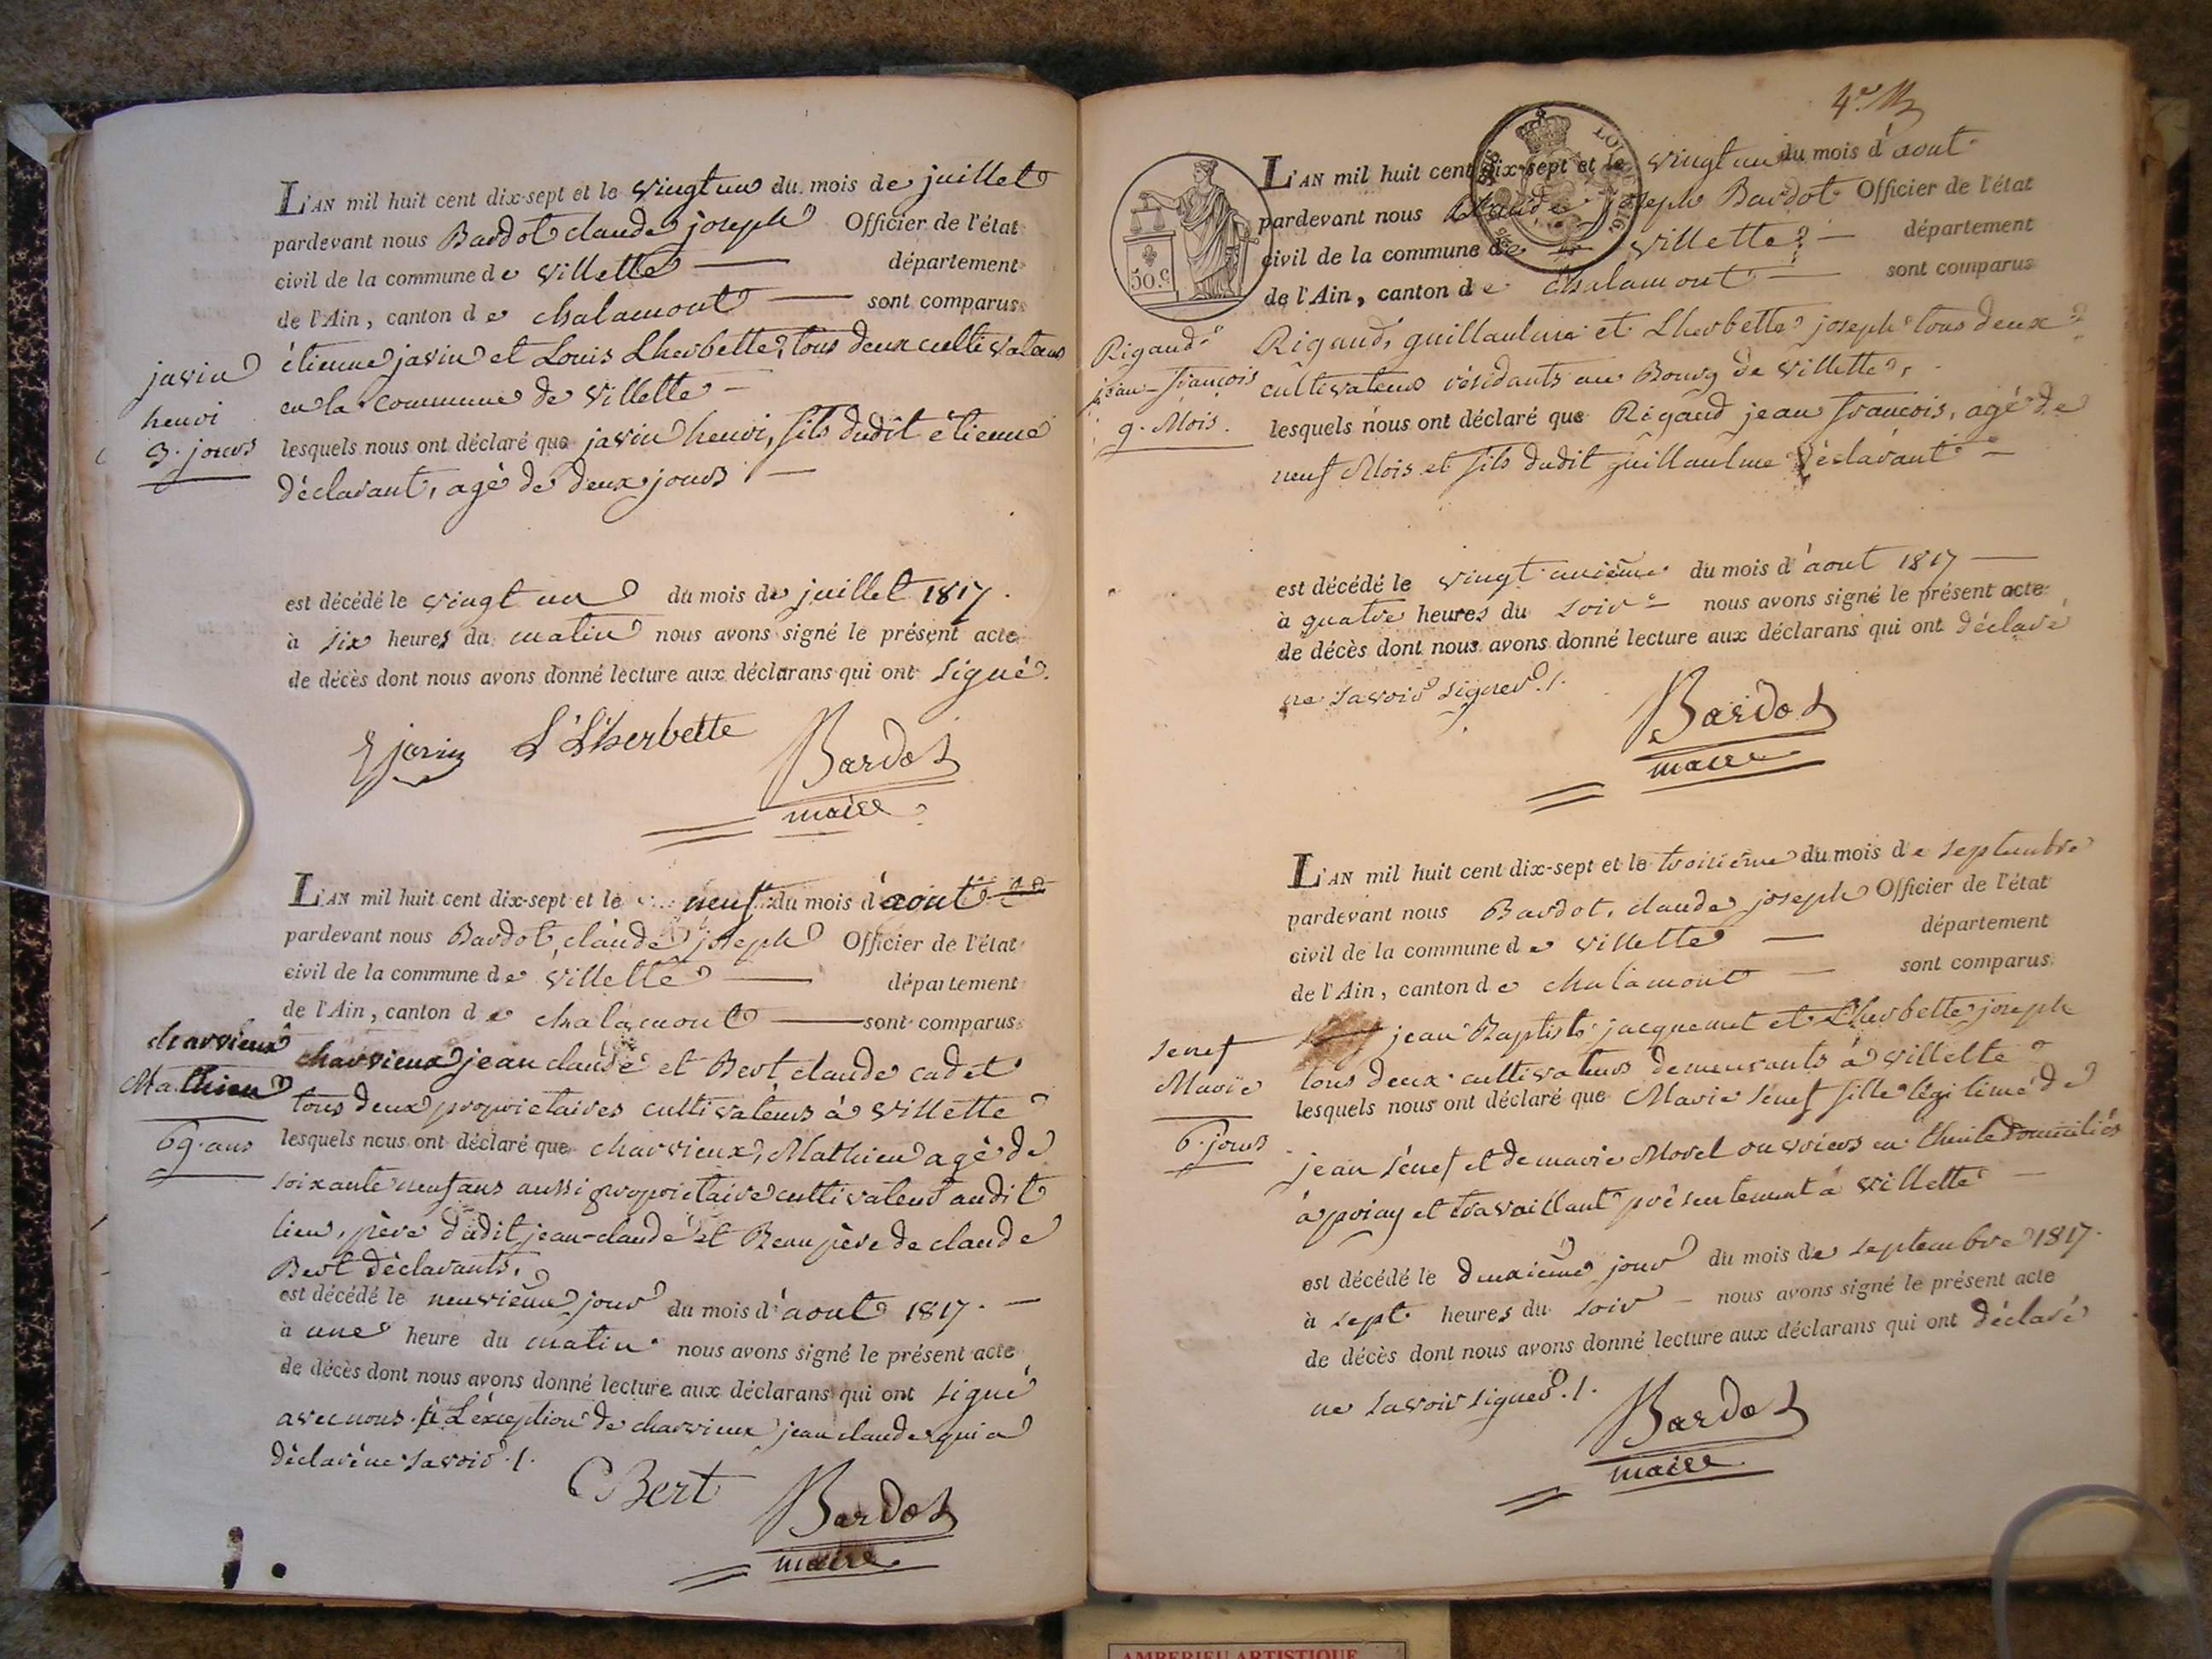 L'AN mil huit cent dix-sept et le vingt un du mois de juillet
pardevant nous Bardot claude joseph Officier de l'état
civil de la commune de villette — département
de l'Ain, canton de chalamont — sont comparus
étienne javin et Louis Lherbette, tous deux cultivateurs
en la commune de villette —
javin
henri
3. jours
lesquels nous ont déclaré que javin henri, fils dudit étienne
déclarant, agé de deux jours —
est décédé le vingt un du mois de juillet 1817.
à six heures du matin nous avons signé le présent acte
de décès dont nous avons donné lecture aux déclarans qui ont signé.
E javin L Lherbette Bardot
maire
L'AN mil huit cent dix-sept et le neuf du mois d'aout
pardevant nous Bardot, claude joseph Officier de l'état
civil de la commune de villette — département
de l'Ain, canton de chalamont — sont comparus
charvieux
Mathieu
69. ans
charvieux jean claude et Bert claude cadet
tous deux proprietaires cultivateurs à villette
lesquels nous ont déclaré que charvieux, Mathieu agé de
soixante neuf ans aussi proprietaire cultivateur audit
lieu, père dudit jean-claude et Beau père de claude
Bert déclarants,
est décédé le neuvième jour du mois d'aout 1817. —
à une heure du matin nous avons signé le présent acte
de décès dont nous avons donné lecture aux déclarans qui ont signé
avec nous à L'éxception de charvieux jean claude qui a
déclaré ne savoir./.
C Bert Bardot
maire
4e
50.c
L'AN mil huit cent dix-sept et le vingt un du mois d'aout
pardevant nous claude joseph Bardot Officier de l'état
civil de la commune de villette — département
de l'Ain, canton de chalamont — sont comparus
Rigaud
jean-françois
9. Mois.
Rigaud, guillaulme et Lherbette joseph tous deux
cultivateurs résidants au Bourg de villette,
lesquels nous ont déclaré que Rigaud jean françois, agé de
neuf Mois et fils dudit guillaulme déclarant —
est décédé le vingt unième du mois d'aout 1817 —
à quatre heures du soir — nous avons signé le présent acte
de décès dont nous avons donné lecture aux déclarans qui ont déclaré
ne savoir signer./.
Bardot
maire
L'AN mil huit cent dix-sept et le troisième du mois de septembre
pardevant nous Bardot, claude joseph Officier de l'état
civil de la commune de villette — département
de l'Ain, canton de chalamont — sont comparus
senef
Marie
6. jours
jean Baptiste jacquemet et Lherbette joseph
tous deux cultivateurs demeurants à villette
lesquels nous ont déclaré que Marie sénef fille légitime de
jean sénef et de marie Morel ouvriers en thuile domiciliés
à poiay et travaillant présentement à villette —
est décédé le deuxième jour du mois de septembre 1817.
à sept heures du soir — nous avons signé le présent acte
de décès dont nous avons donné lecture aux déclarans qui ont déclaré
ne savoir signer./.
Bardot
maire
AMBERIEU ARTISTIQUE